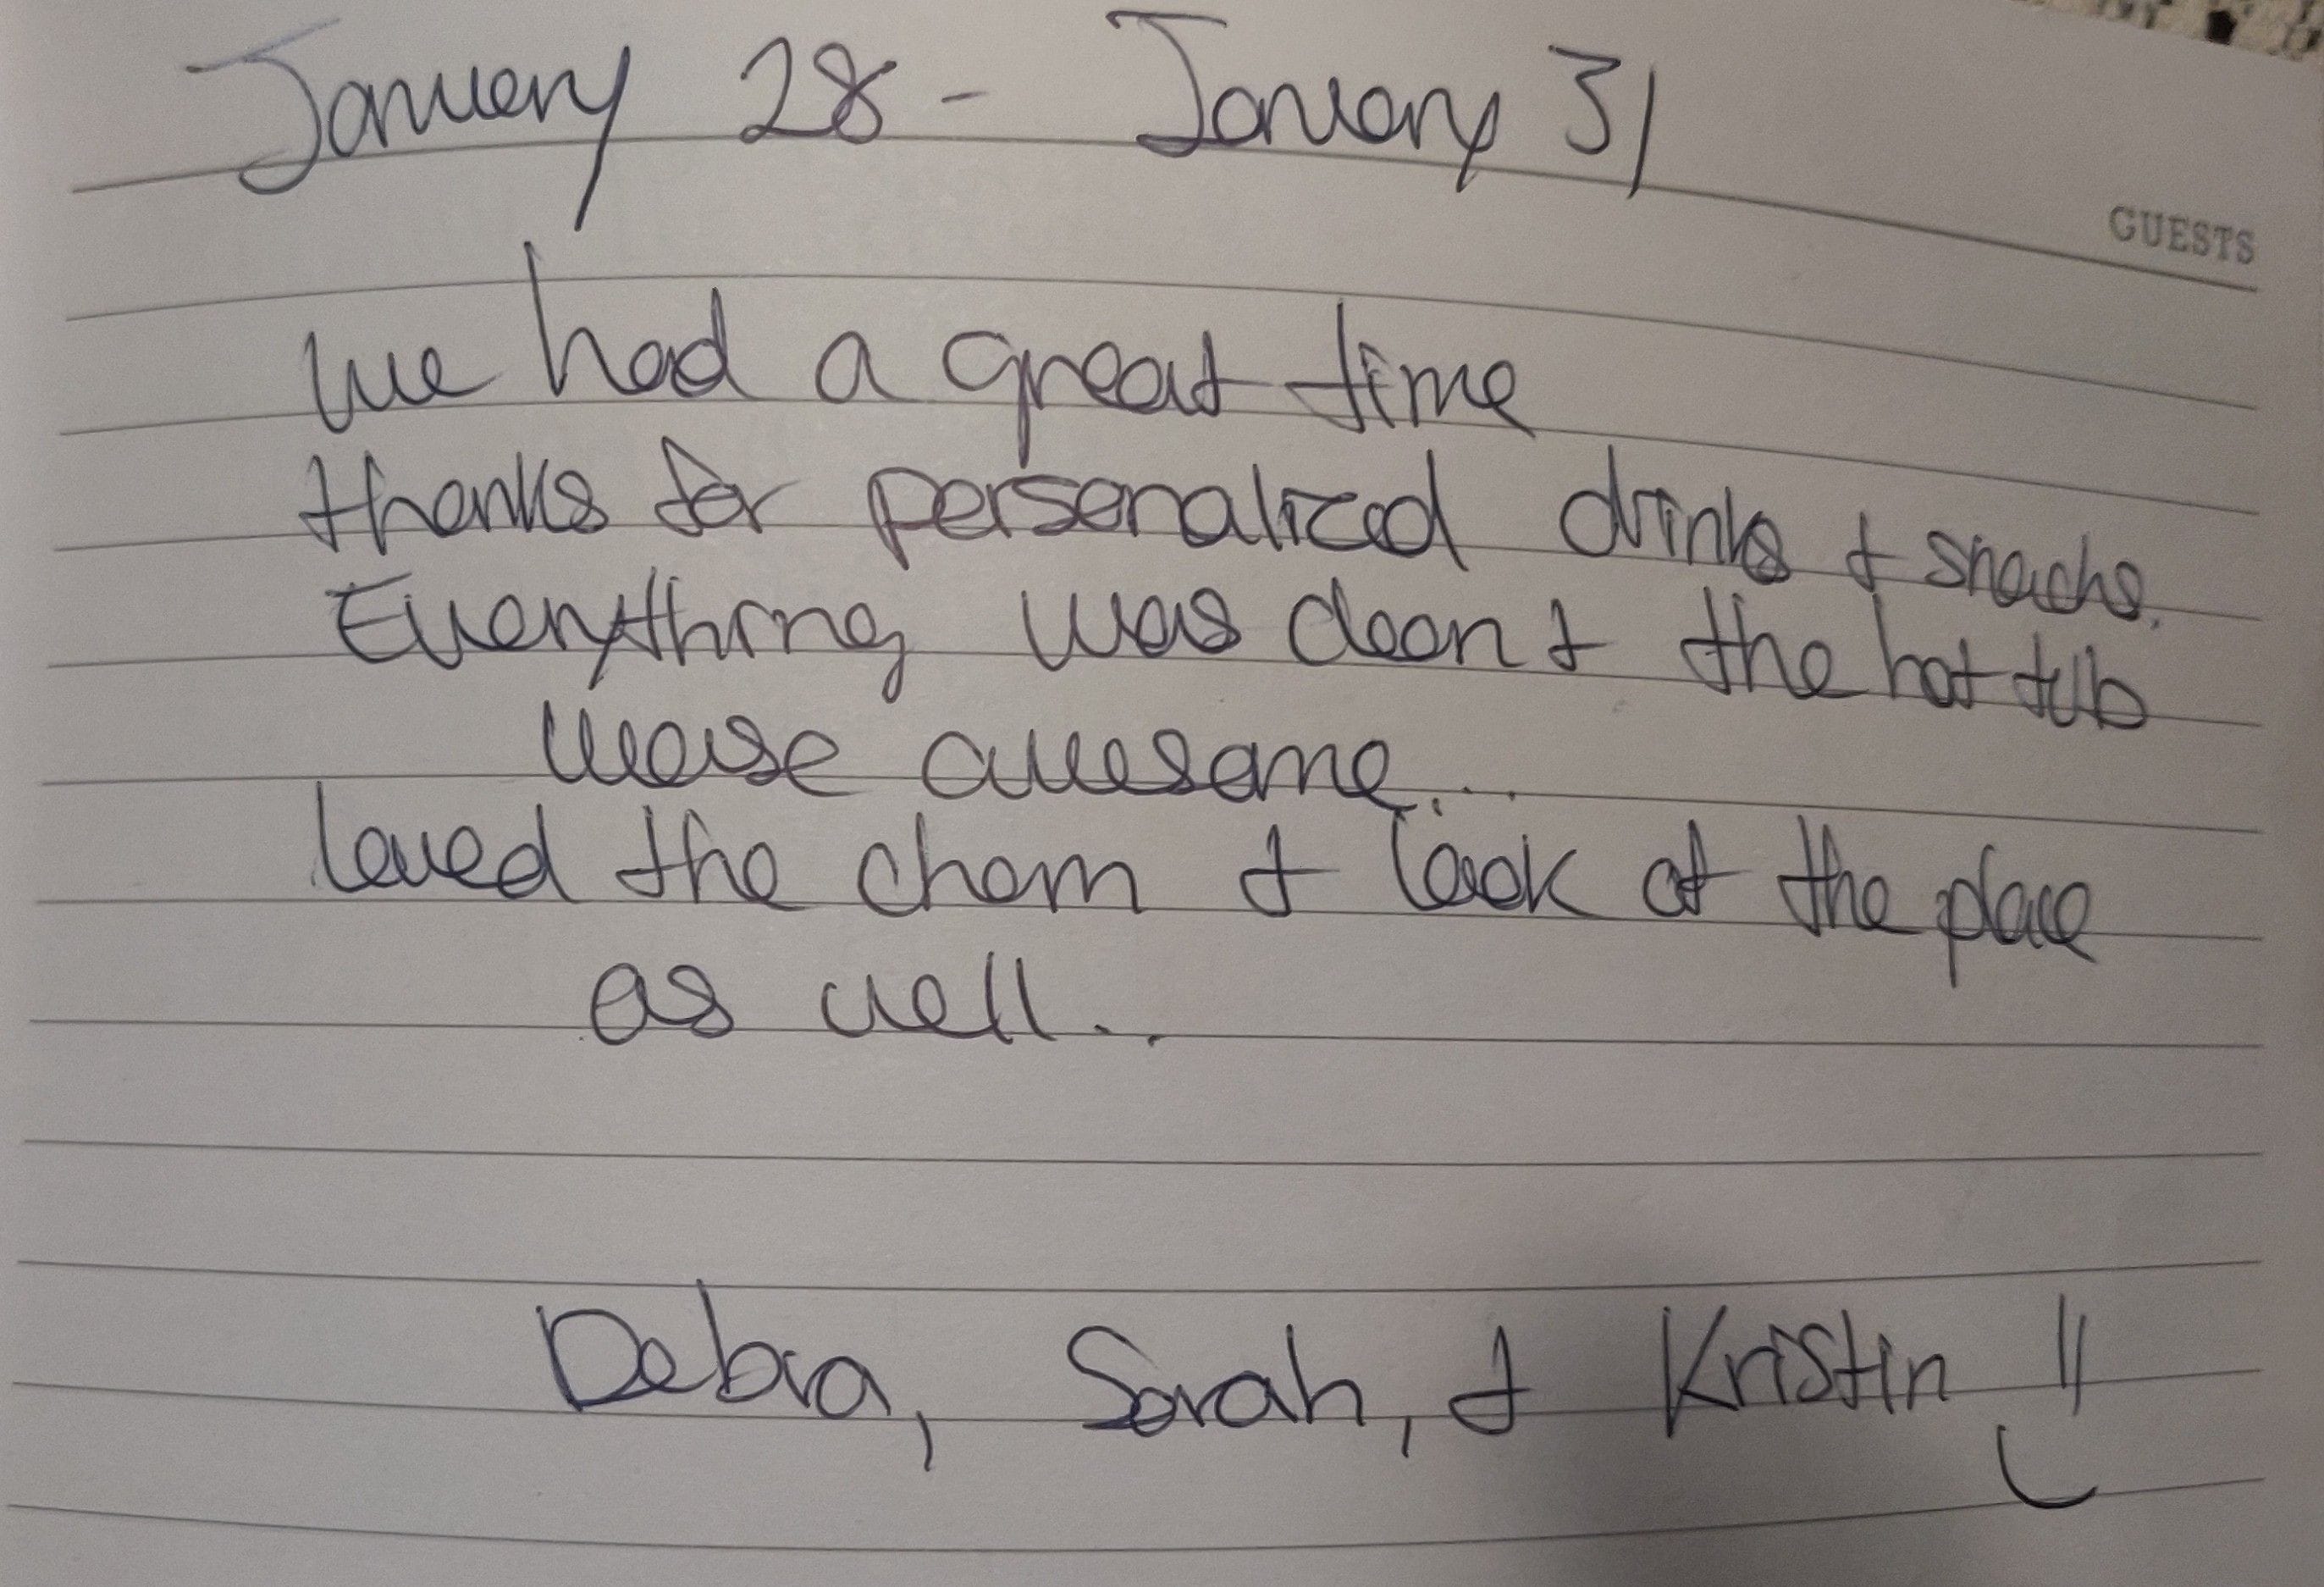 January 28 - January 31
GUESTS
we had a great time
thanks for personalized drinks + snacks.
Everything was clean + the hot tub
was awesome...
loved the charm + look of the place
as well..
Debra, Sarah, + Kristin !!